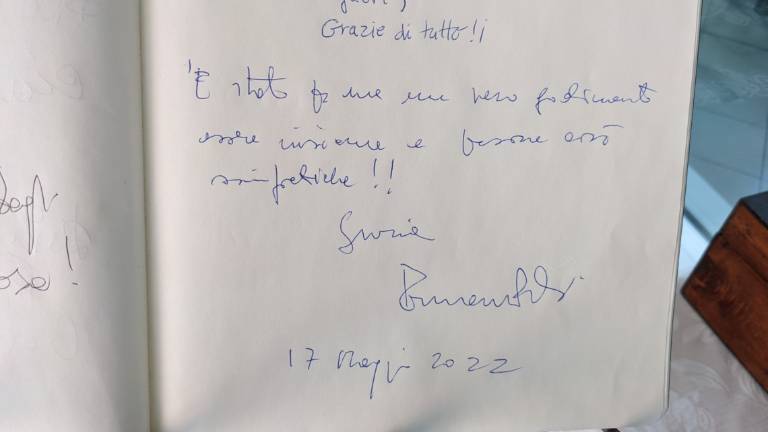 Grazie di tutto!¡
'E stato per me un vero godimento
essere insieme a persone così
simpatiche!!
Grazie
17 Maggio 2022